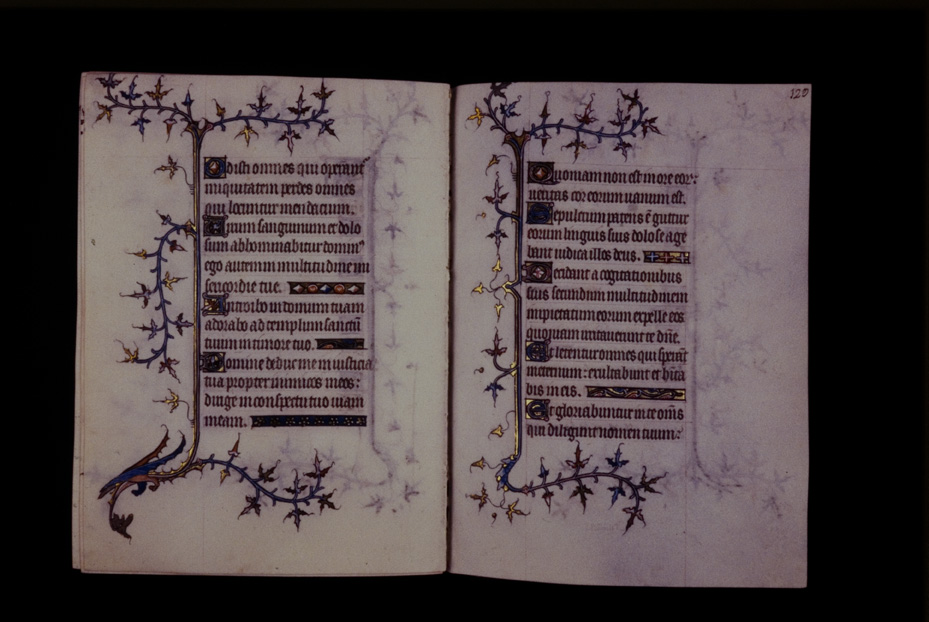 Odisti omnes qui operant᷒
iniquitatem perdes omnes
qui locuntur mendacium.
Uirum sanguinum et dolo
sum abhominabitur domin᷒
ego autem in multitudine mi
sericordie tue.
Introibo in domum tuam
adorabo ad templum sanctū
tuum in timore tuo.
Domine deduc me in iusticia
tua propter inimicos meos:
dirige in conspectu tuo uiam
meam.
120
Quoniam non est in ore eor᷒:
ueritas cor eorum uanum est.
Sepulcrum patens ē guttur
eorum linguis suis dolose age
bant iudica illos deus.
Decidant a cogitationibus
suis secundum multitudinem
impietatum eorum expelle eos
quoniam irritauerunt te dn̄e.
Et letentur omnes qui sperāt
in eternum: exultabunt et hīta
bis in eis.
Et gloriabuntur in te om̄s
qui diligunt nomen tuum: